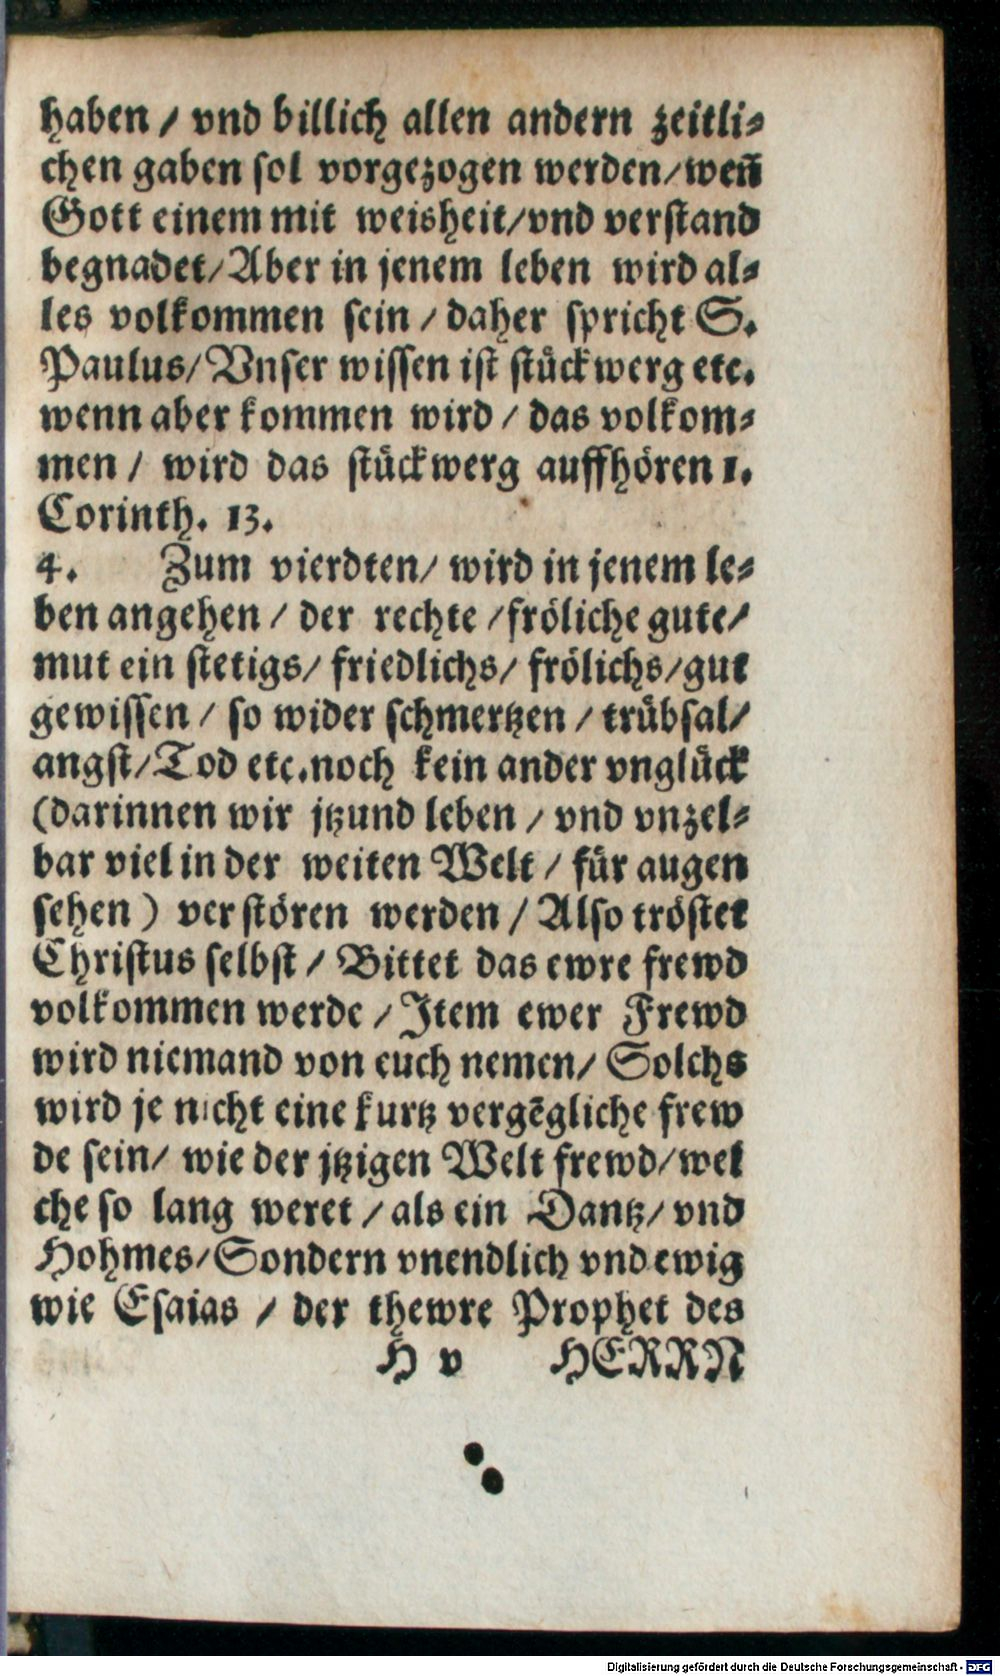 haben / vnd billich allen andern zeitli⸗
chen gaben sol vorgezogen werden/weñ
Gott einem mit weisheit/vnd verstand
begnadet/Aber in jenem leben wird al⸗
les volkommen sein / daher spricht S.
Paulus/Vnser wissen ist stückwerg etc.
wenn aber kommen wird / das volkom⸗
men / wird das stückwerg auffhören 1.
Corinth. 13.
4. Zum vierdten/ wird in jenem le⸗
ben angehen / der rechte /fröliche gute/
mut ein stetigs/ friedlichs/ frölichs/gut
gewissen / so wider schmertzen / trübsal/
angst/Tod etc.noch kein ander vnglück
(darinnen wir jtzund leben / vnd vnzel⸗
bar viel in der weiten Welt / für augen
sehen) verstören werden / Also tröstet
Christus selbst / Bittet das ewre frewd
volkommen werde / Item ewer Frewd
wird niemand von euch nemen/ Solchs
wird je nicht eine kurtz vergẽgliche frew
de sein/ wie der jtzigen Welt frewd/wel
che so lang weret / als ein Dantz/ vnd
Hohmes/Sondern vnendlich vnd ewig
wie Esaias / der thewre Prophet des
H v HERRN
Digitalisierung gefördert durch die Deutsche Forschungsgemeinschaft - DFG